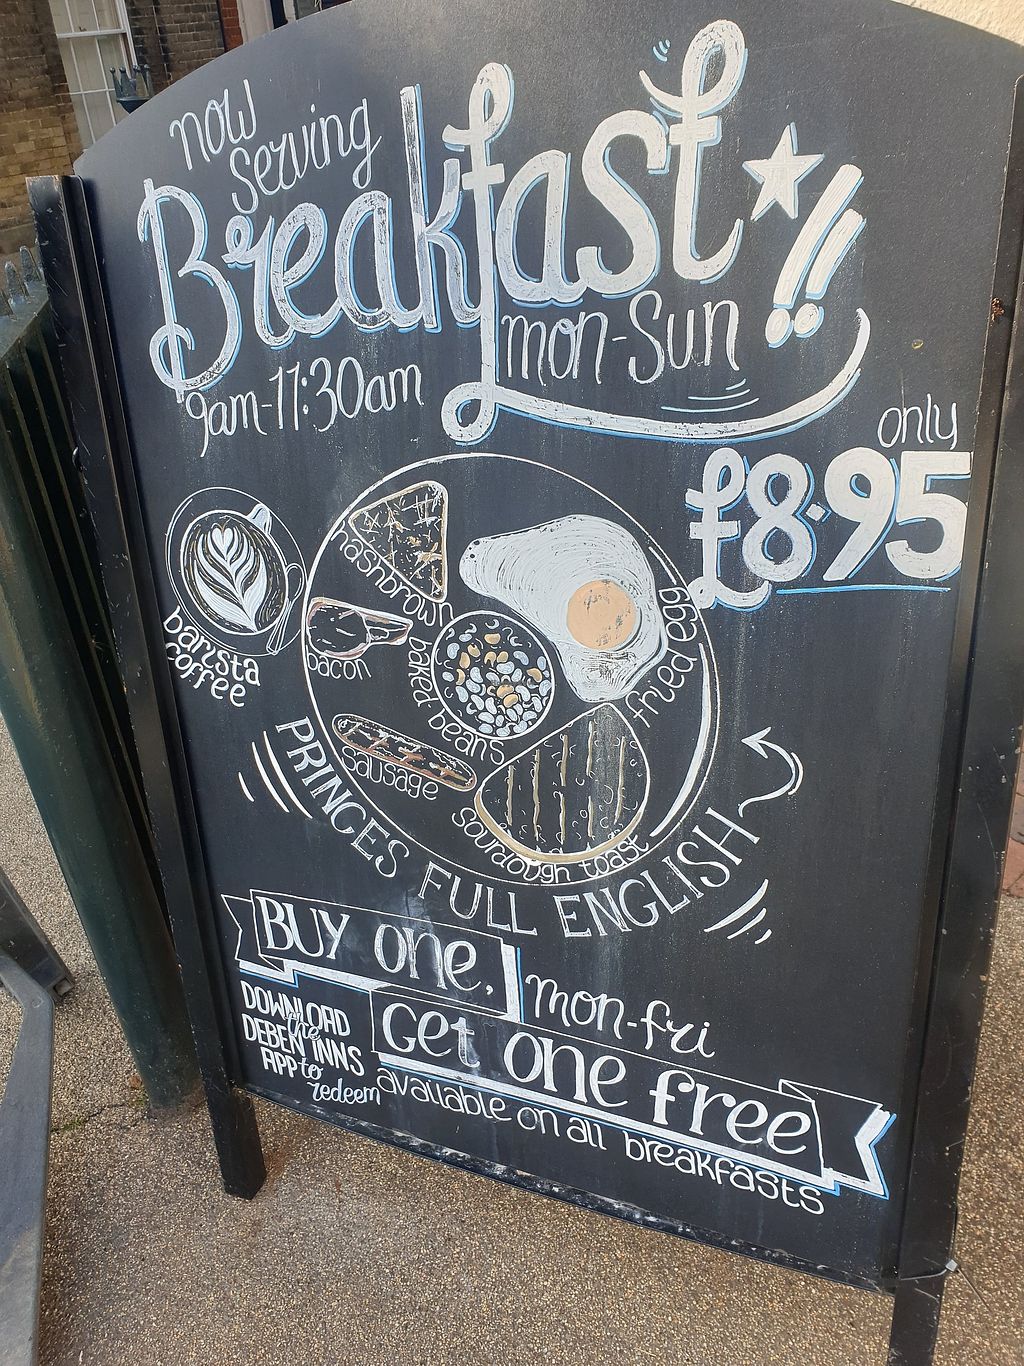 now
serving
Breakfast!!
mon-Sun
9am-11:30am
only
£8.95
hashbrown
bacon
baked beans
fried egg
sausage
sourdough toast
barista
coffee
PRINCES FULL ENGLISH
BUY one,
mon-fri
Get one free
DOWNLOAD
the
DEBEN INNS
APP to
redeem
available on all breakfasts